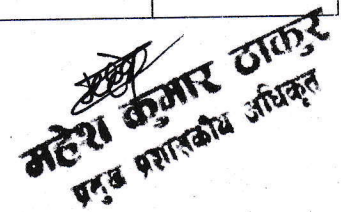 महेश कुमार ठाकुर
प्रमुख प्रशासकीय अधिकृत